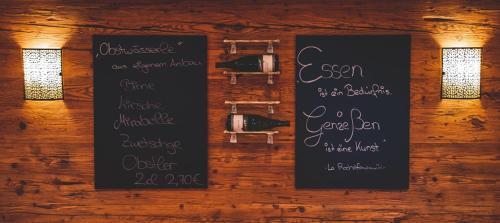 „Obstwässerle"
aus eigenem Anbau
Birne
Kirsche
Mirabelle
Zwetschge
Obstler
2cl 2,70€
Essen
ist ein Bedürfnis,
Genießen
ist eine Kunst"
- La Rochefoucauld -